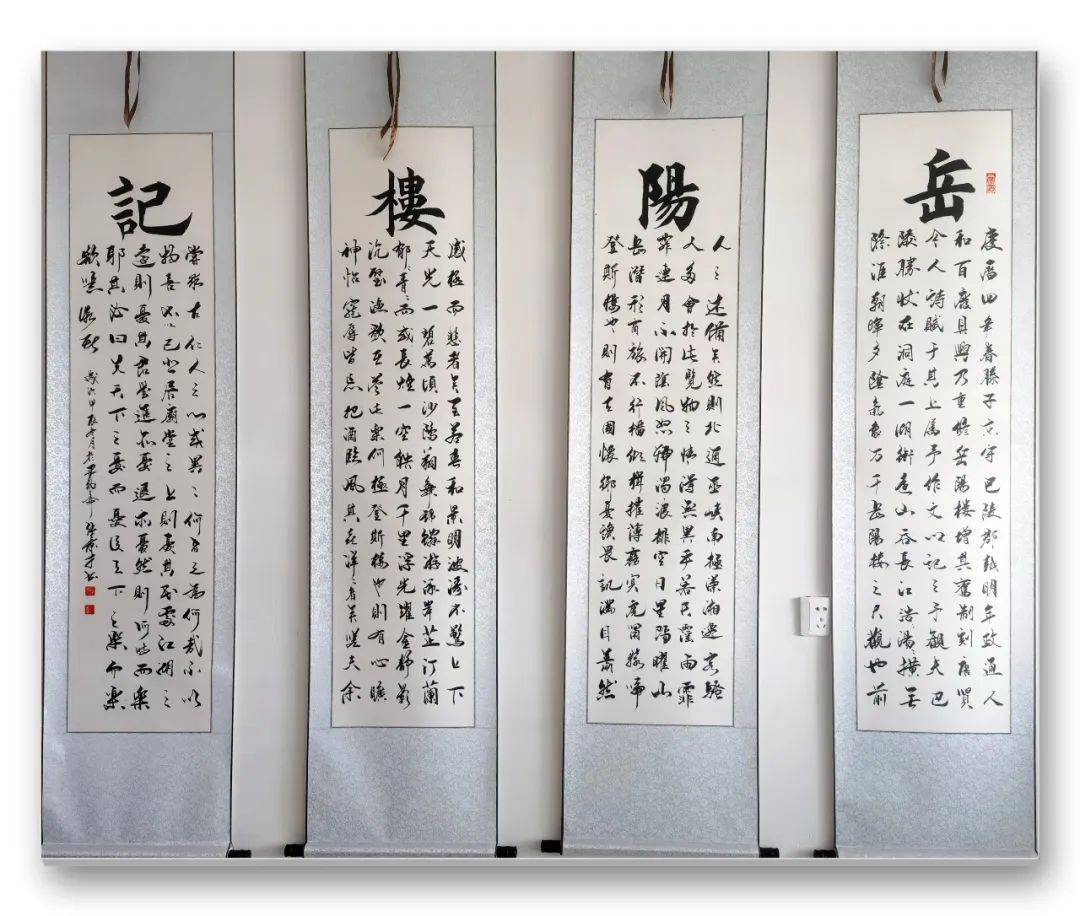 岳
慶曆四年春滕子京守巴陵郡越明年政通人
和百廢具興乃重修岳陽樓增其舊制刻唐賢
今人詩賦于其上屬予作文以記之予觀夫巴
陵勝狀在洞庭一湖銜遠山吞長江浩湯橫無
際涯朝暉夕陰氣象万千岳陽樓之大觀也前
陽
人之述備矣然則北通巫峽南極瀟湘遷客騷
人多會於此覽物之情得無異乎若夫霪雨霏
霏連月不開陰風怒號濁浪排空日星隱曜山
岳潛形商旅不行檣傾楫摧薄暮冥虎嘯猿啼
登斯樓也則有去國懷鄉憂讒畏譏滿目蕭然
樓
感極而悲者矣至若春和景明波瀾不驚上下
天光一碧萬頃沙鷗翔集錦鱗游泳岸芷汀蘭
郁青而或長煙一空皓月千里浮光躍金靜影
沉璧漁歌互答此樂何極登斯樓也則有心曠
神怡寵辱皆忘把酒臨風其喜洋々者矣嗟夫余
記
嘗求古仁人之心或異二者之為何哉不以
物喜不以己悲居廟堂之上則憂其民處江湖之
遠則憂其君是進亦憂退亦憂然則何時而樂
耶其必曰先天下之憂而憂後天下之樂而樂
歟噫微斯 歲次甲辰冬月於